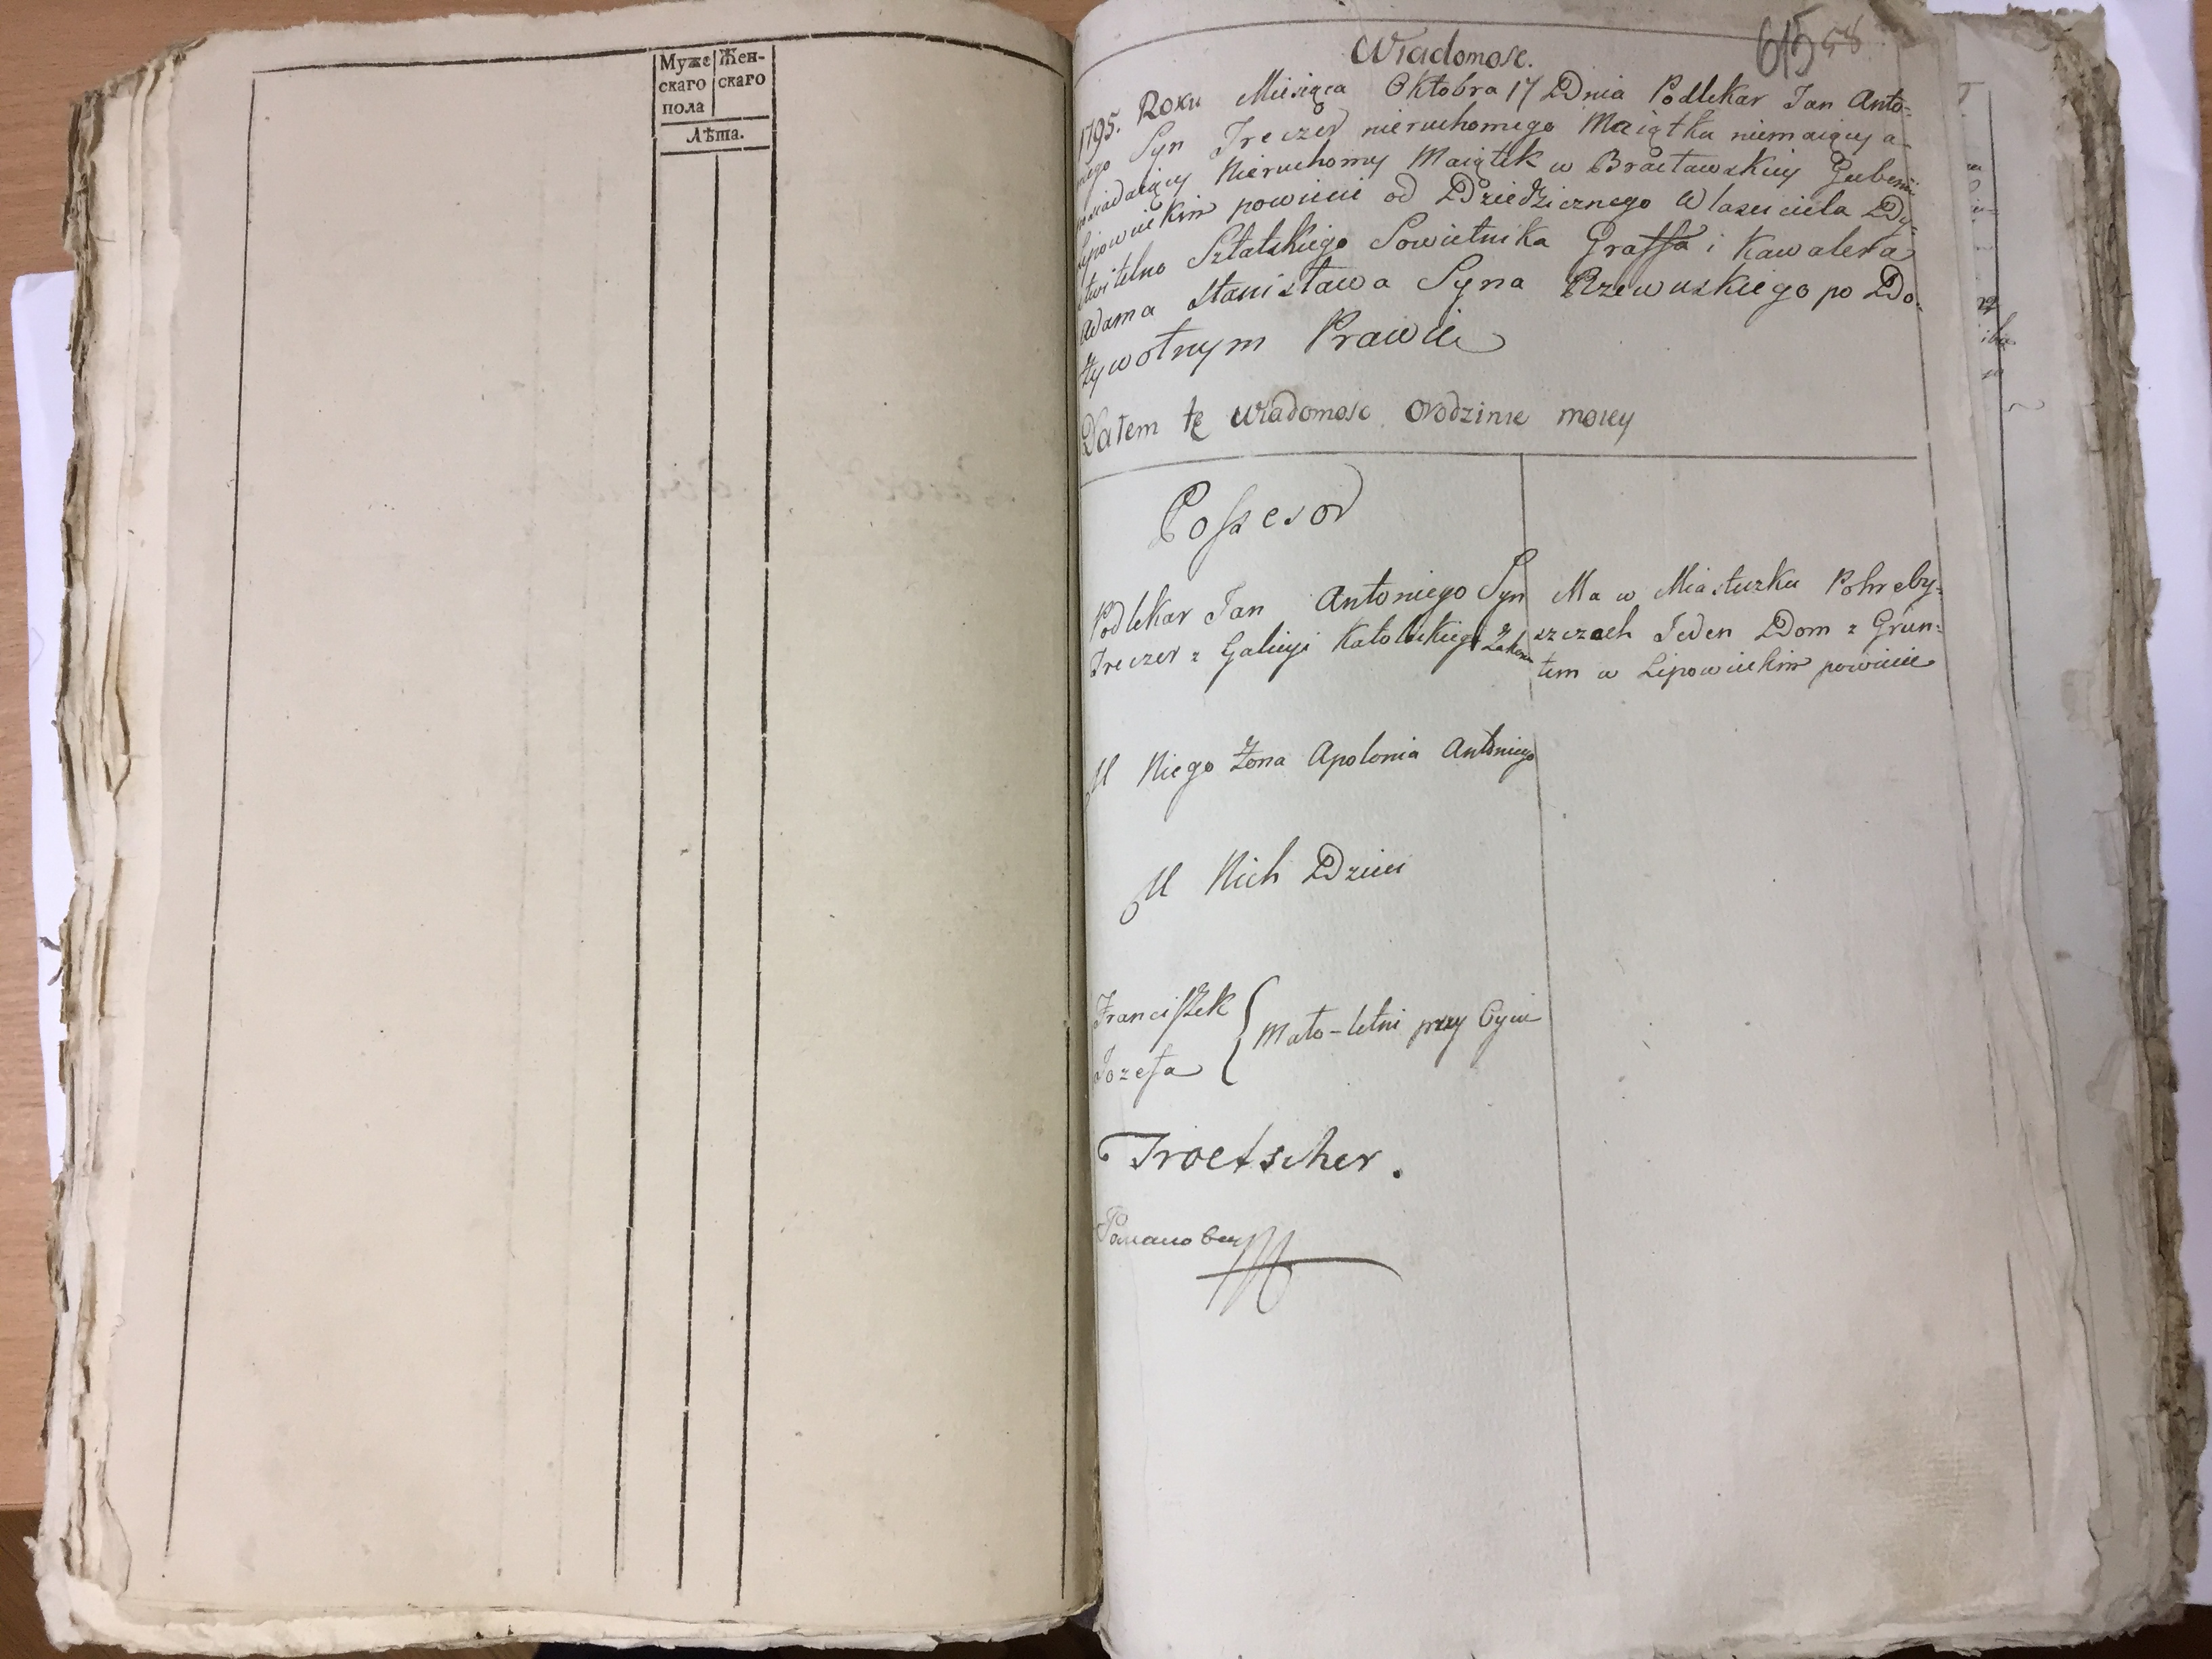 Муже Жен-
скаго скаго
пола
Лѣта.
615 58
Wiadomosc.
1795. Roku Miesiąca Oktobra 17 Dnia Podlekar Jan Anto-
niego Syn Treczer nieruchomego Maiątku niemaiący a
posiadaiący Nieruchomy Maiątek w Bracławskiey Gubernii
Lipowieckim powiecie od Dziedzicznego Własciciela Dy-
stwitelno Sztatskiego Sowietnika Graffa i Kawalera
Adama Stanisława Syna Rzewuskiego po Do-
żywotnym Prawie
Dałem tę wiadomosc orodzinie moiey
Possesor
Podlekar Jan Antoniego Syn
Treczer z Galicyi Katolickiego Zakonu
Ma w Miasteczku Pohreby-
szczach Jeden Dom z Grun-
tem w Lipowieckim powiecie
U Niego Żona Apolonia Antoniego
U Nich Dzieci
Franciszek
Mało-letni przy Oycu
Jozefa
Troetscher.